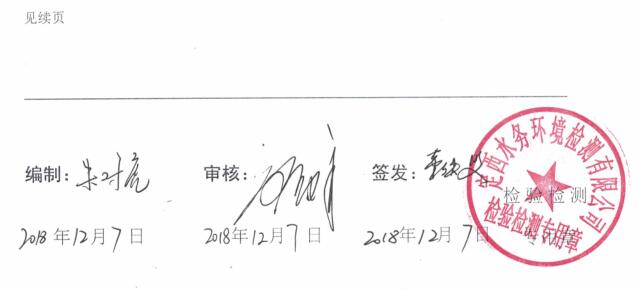 见续页
编制: 审核: 签发:
西水务环境检测有限公司
检验检测
检验检测专用章
2018年12月7日 2018年12月7日 2018年12月7日